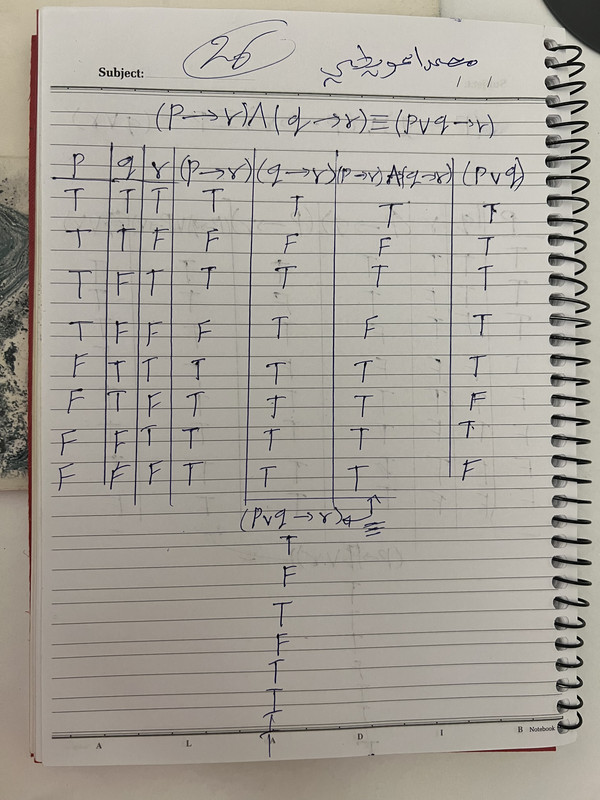 26
Subject:
(P→r)∧(q→r)≡(P∨q→r)
P q r (P→r) (q→r) (P→r)∧(q→r) (P∨q)
T T T T T T T
T T F F F F T
T F T T T T T
T F F F T F T
F T T T T T T
F T F T T T F
F F T T T T T
F F F T T T F
(P∨q→r) ≡
T
F
T
F
T
T
T
T
A L A D I B Notebook